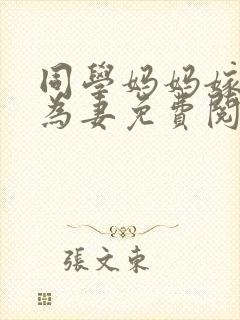 同學媽媽嫁
為妻免費閱
張文東